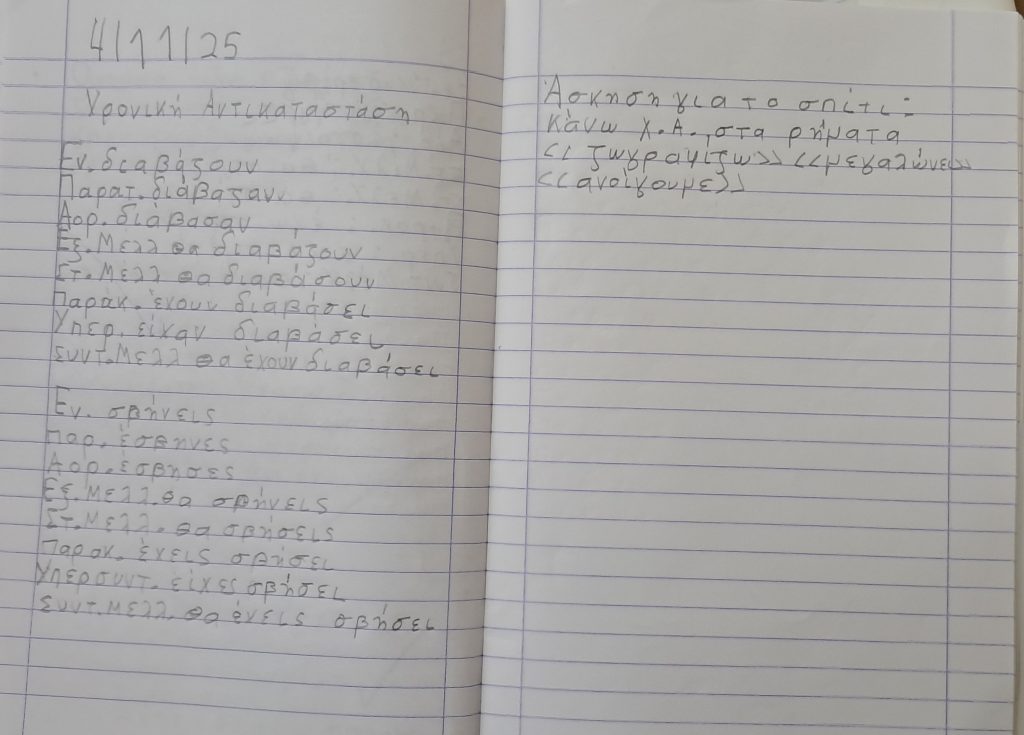 4/11/25
Χρονική Αντικαταστάση
Εν. διαβάζουν
Παρατ. διάβαζαν
Αορ. διάβασαν
Εξ. Μελλ θα διαβάζουν
Στ. Μελλ θα διαβάσουν
Παράκ. έχουν διαβάσει
Υπερ. είχαν διαβάσει
Συντ. Μελλ θα έχουν διαβάσει
Εν. σβήνεις
Παρ. έσβηνες
Αορ. έσβησες
Εξ. Μελλ. θα σβήνεις
Στ. Μελλ. θα σβήσεις
Παρακ. έχεις σβήσει
Υπερσυντ. είχες σβήσει
Συντ. Μελλ. θα έχεις σβήσει
Άσκηση για το σπίτι:
Κάνω Χ.Α., στα ρήματα
<<ζωγραφίζω>> <<μεγαλώνει>>
<<ανοίγουμε>>